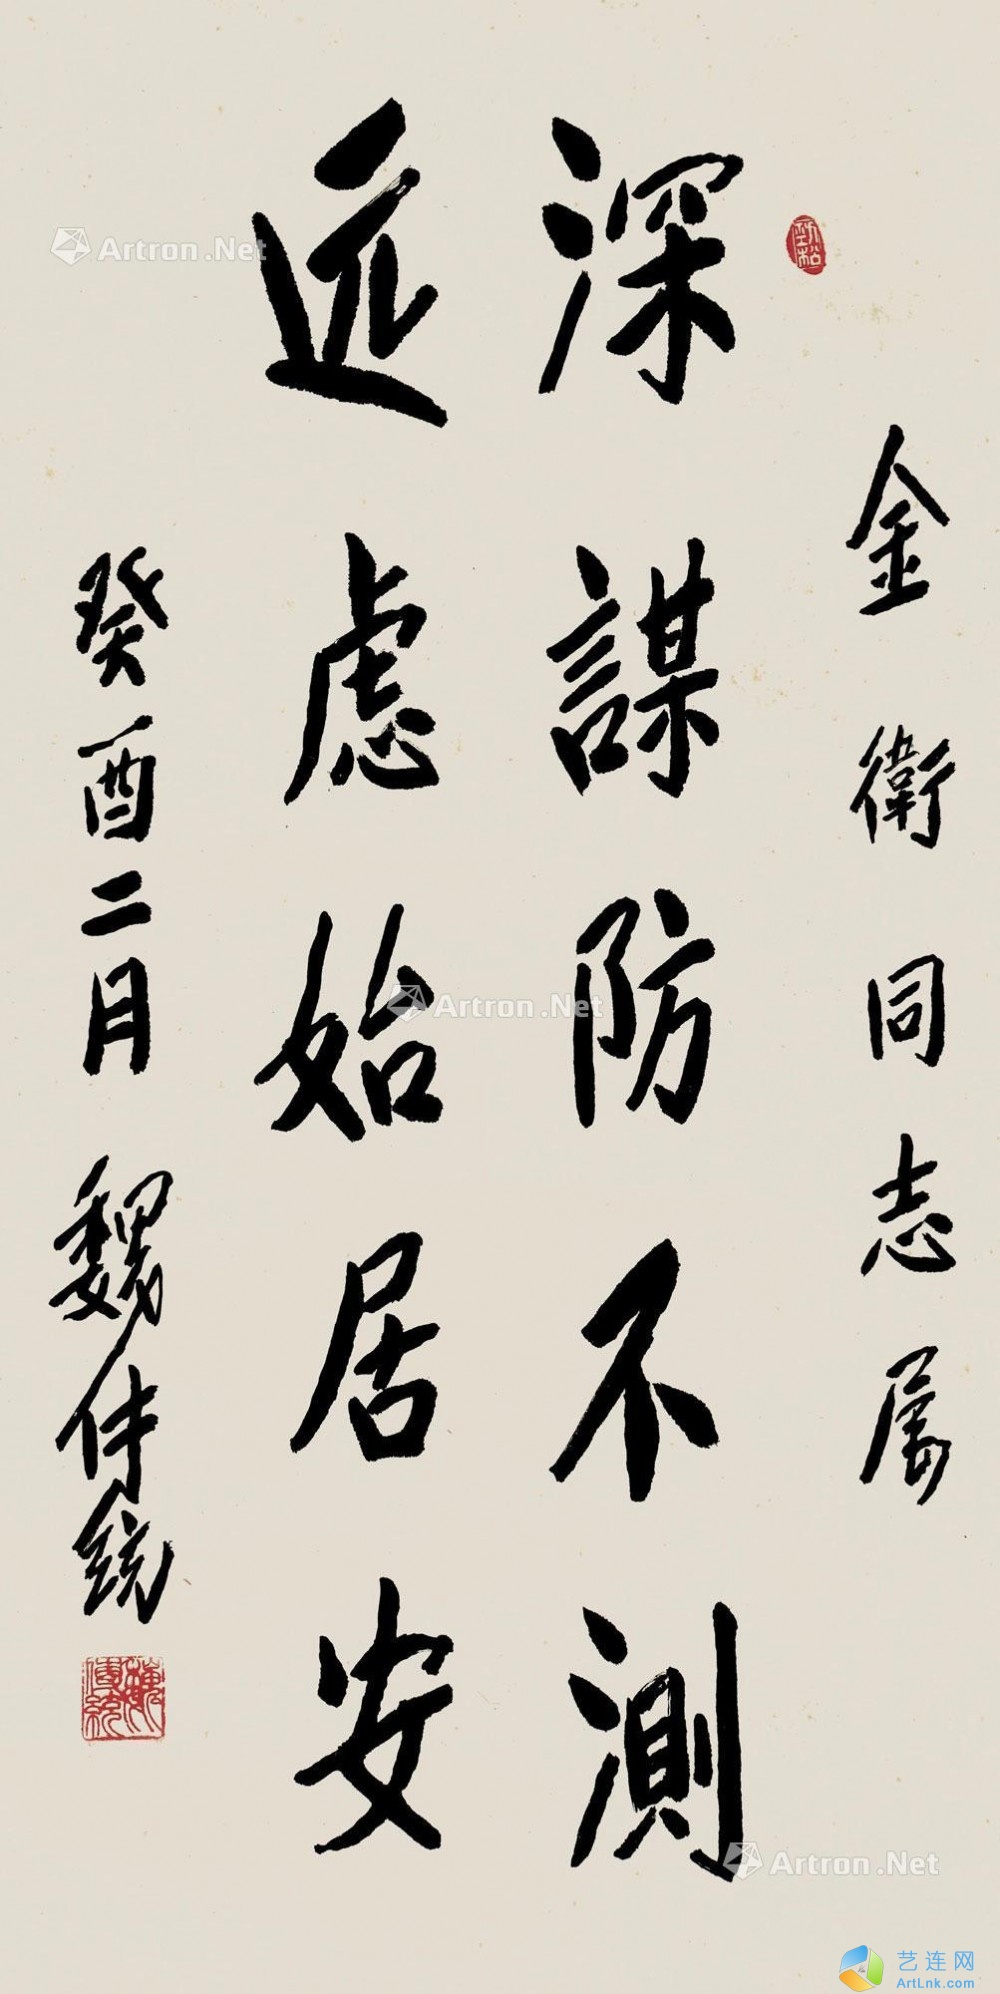 金衛同志属
深謀防不測
远慮始居安
癸酉二月 魏传統
勁松
魏傳統
Artron.Net
Artron.Net
Artron.Net
艺连网
ArtLnk.com